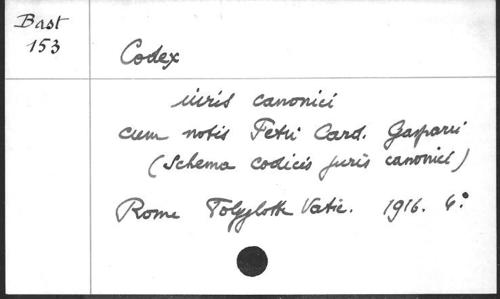 Bast
153
Codex
iuris canonici
cum notis Petri Card. Gasparri
(Schema codicis juris canonici)
Rome Polyglotte Vatic. 1916. 4°